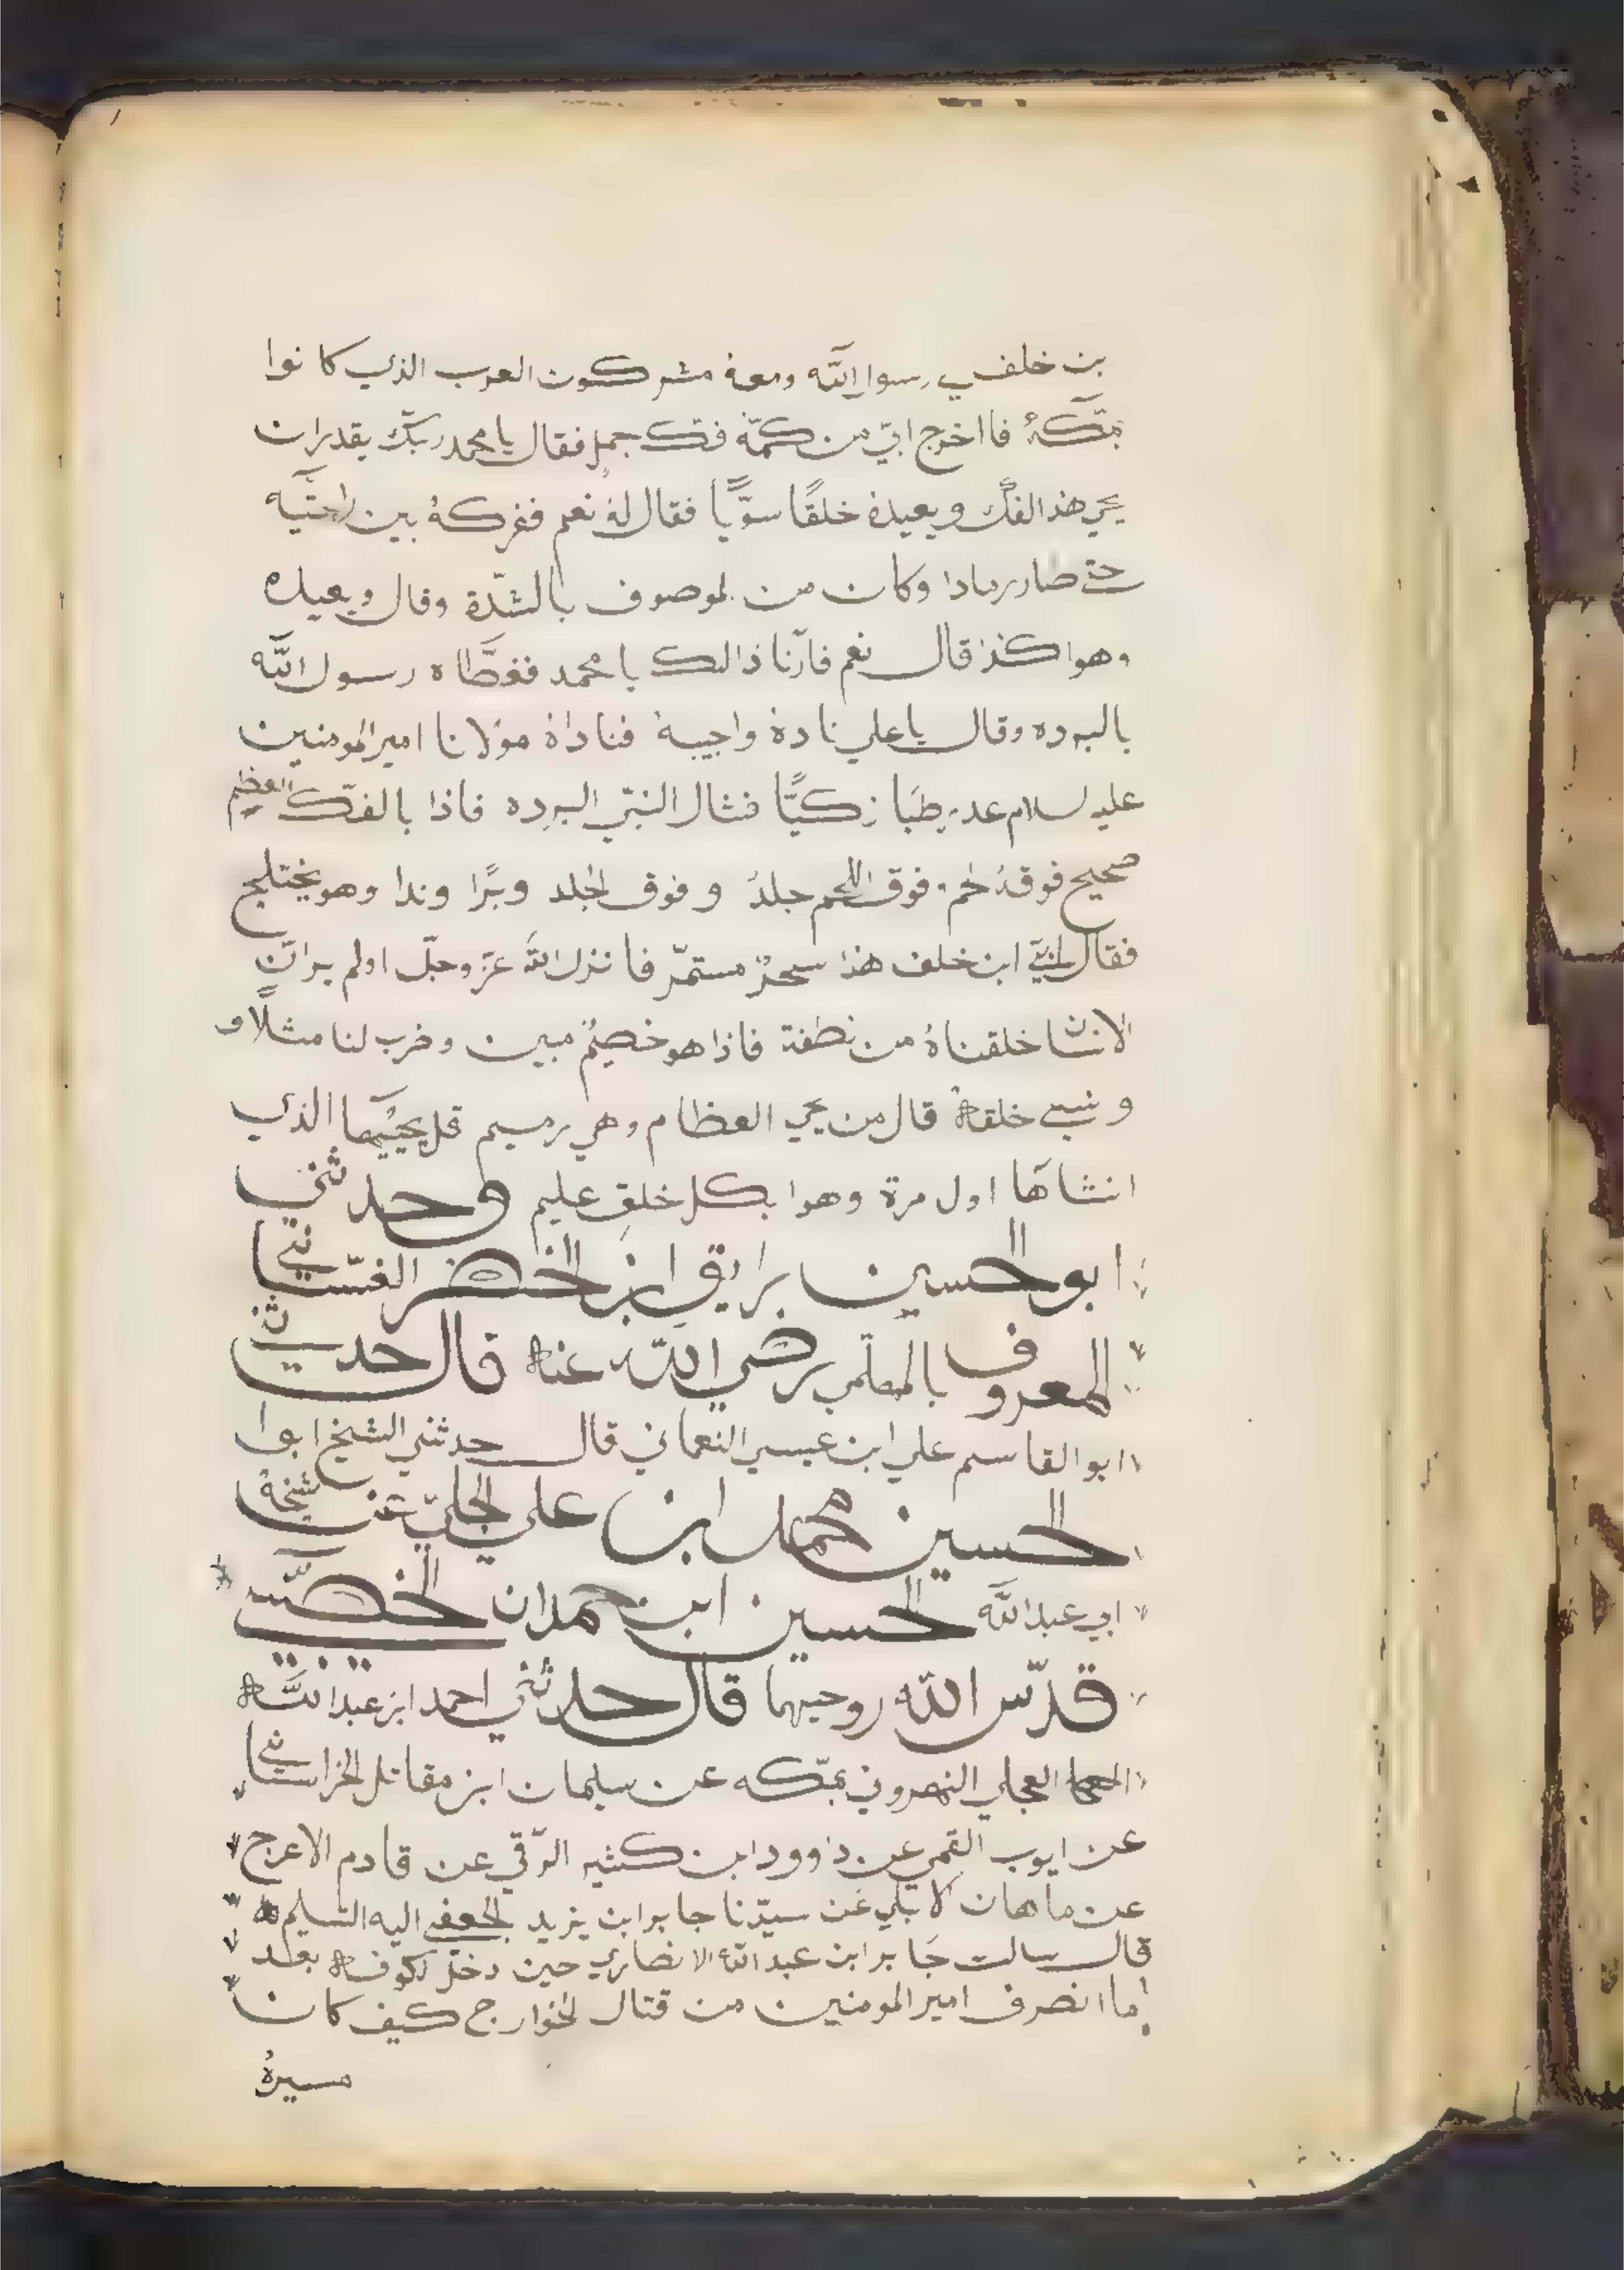 بن خلف رسول الله ومعه مشركون العرب الذي كانوا
بمكّة فااخرج ابيّ من كمّه فكّ جمل فقال يا محمد ربّك يقدر ان
يحي هذ الفكّ ويعيده خلقًا سوّيًا فقال لهُ نعم ففركهُ بين راحتيه
حتى صار رمادا وكان من لموصوف بالشدّة وقال ويعيده
وهوا كذا قال نعم فآرنا ذالك يا محمد فغطّاه رسول اللّه
بالبرده وقال يا علي نادهُ واجيبهُ فناداهُ مولانا امير المومنين
عليه لسلام عد رطبًا زكيًّا فشال النبّي البرده فاذا بالفكّ العظيم
صحيح فوقهُ لحم وفوق اللحم جلدٌ وفوق الجلد وبرًا وندا وهو يختلج
فقال ابيّ ابن خلف هذا سحرٌ مستمرّ فا نزل اللّه عزّ وجلّ اولم ير انّ
الانسان خلقناهُ من نطفة فاذا هو خصيمٌ مبين وضرب لنا مثلًا و
ونسي خلقهُ قال من يحي العظام وهي رميم قل يحييها الذي
انشاها اول مرة وهوا بكل خلقٍ عليم وحدثني
ابو الحسين برايق ابن الخضر الغسّاني
المعروف بالمعلّمي رضي اللّه عنه قال حدثني
ابو القاسم علي ابن عيسي النعماني قال حدثني الشيخ ابوا
الحسين محمد ابن علي الجلّي عن شيخهُ
ابي عبد اللّه الحسين ابن حمدان الخصيّبي
قدّس اللّه روحيهما قال حدثني احمد ابن عبد اللّه
العجلي النهروني بمّكه عن سليمان ابن مقاتل الخراساني
عن ايوب القمي عن داوود ابن كثير الرّقي عن قادم الاعرج
عن ماهان الابلي عن سيدّنا جابر ابن يزيد الجعفي اليه التسليم
قال سالت جابر ابن عبد اللّه الانصاري حين دخل لكوفه بعد
ما انصرف امير المومنين من قتال الخوارج كيف كان
مسيرهُ